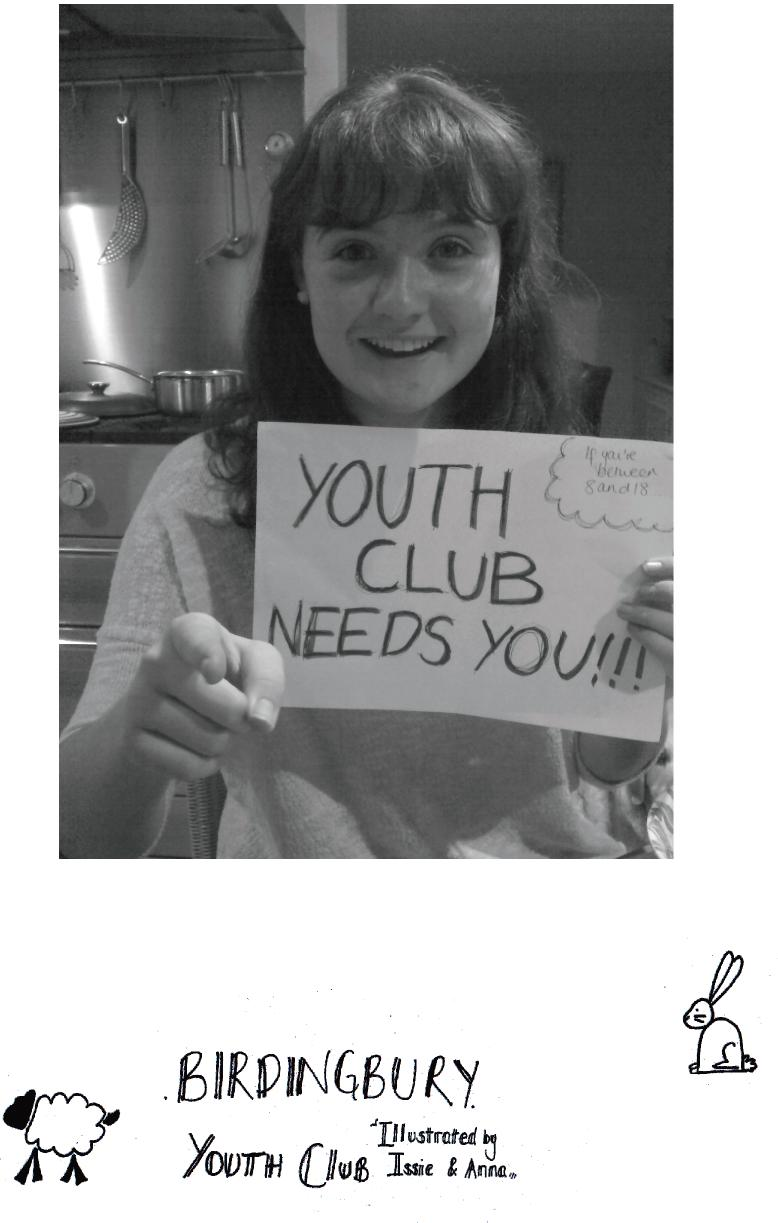 If you're
between
8 and 18
YOUTH
CLUB
NEEDS YOU!!!
BIRDINGBURY
YOUTH CLUB
"Illustrated by
Issie & Anna"